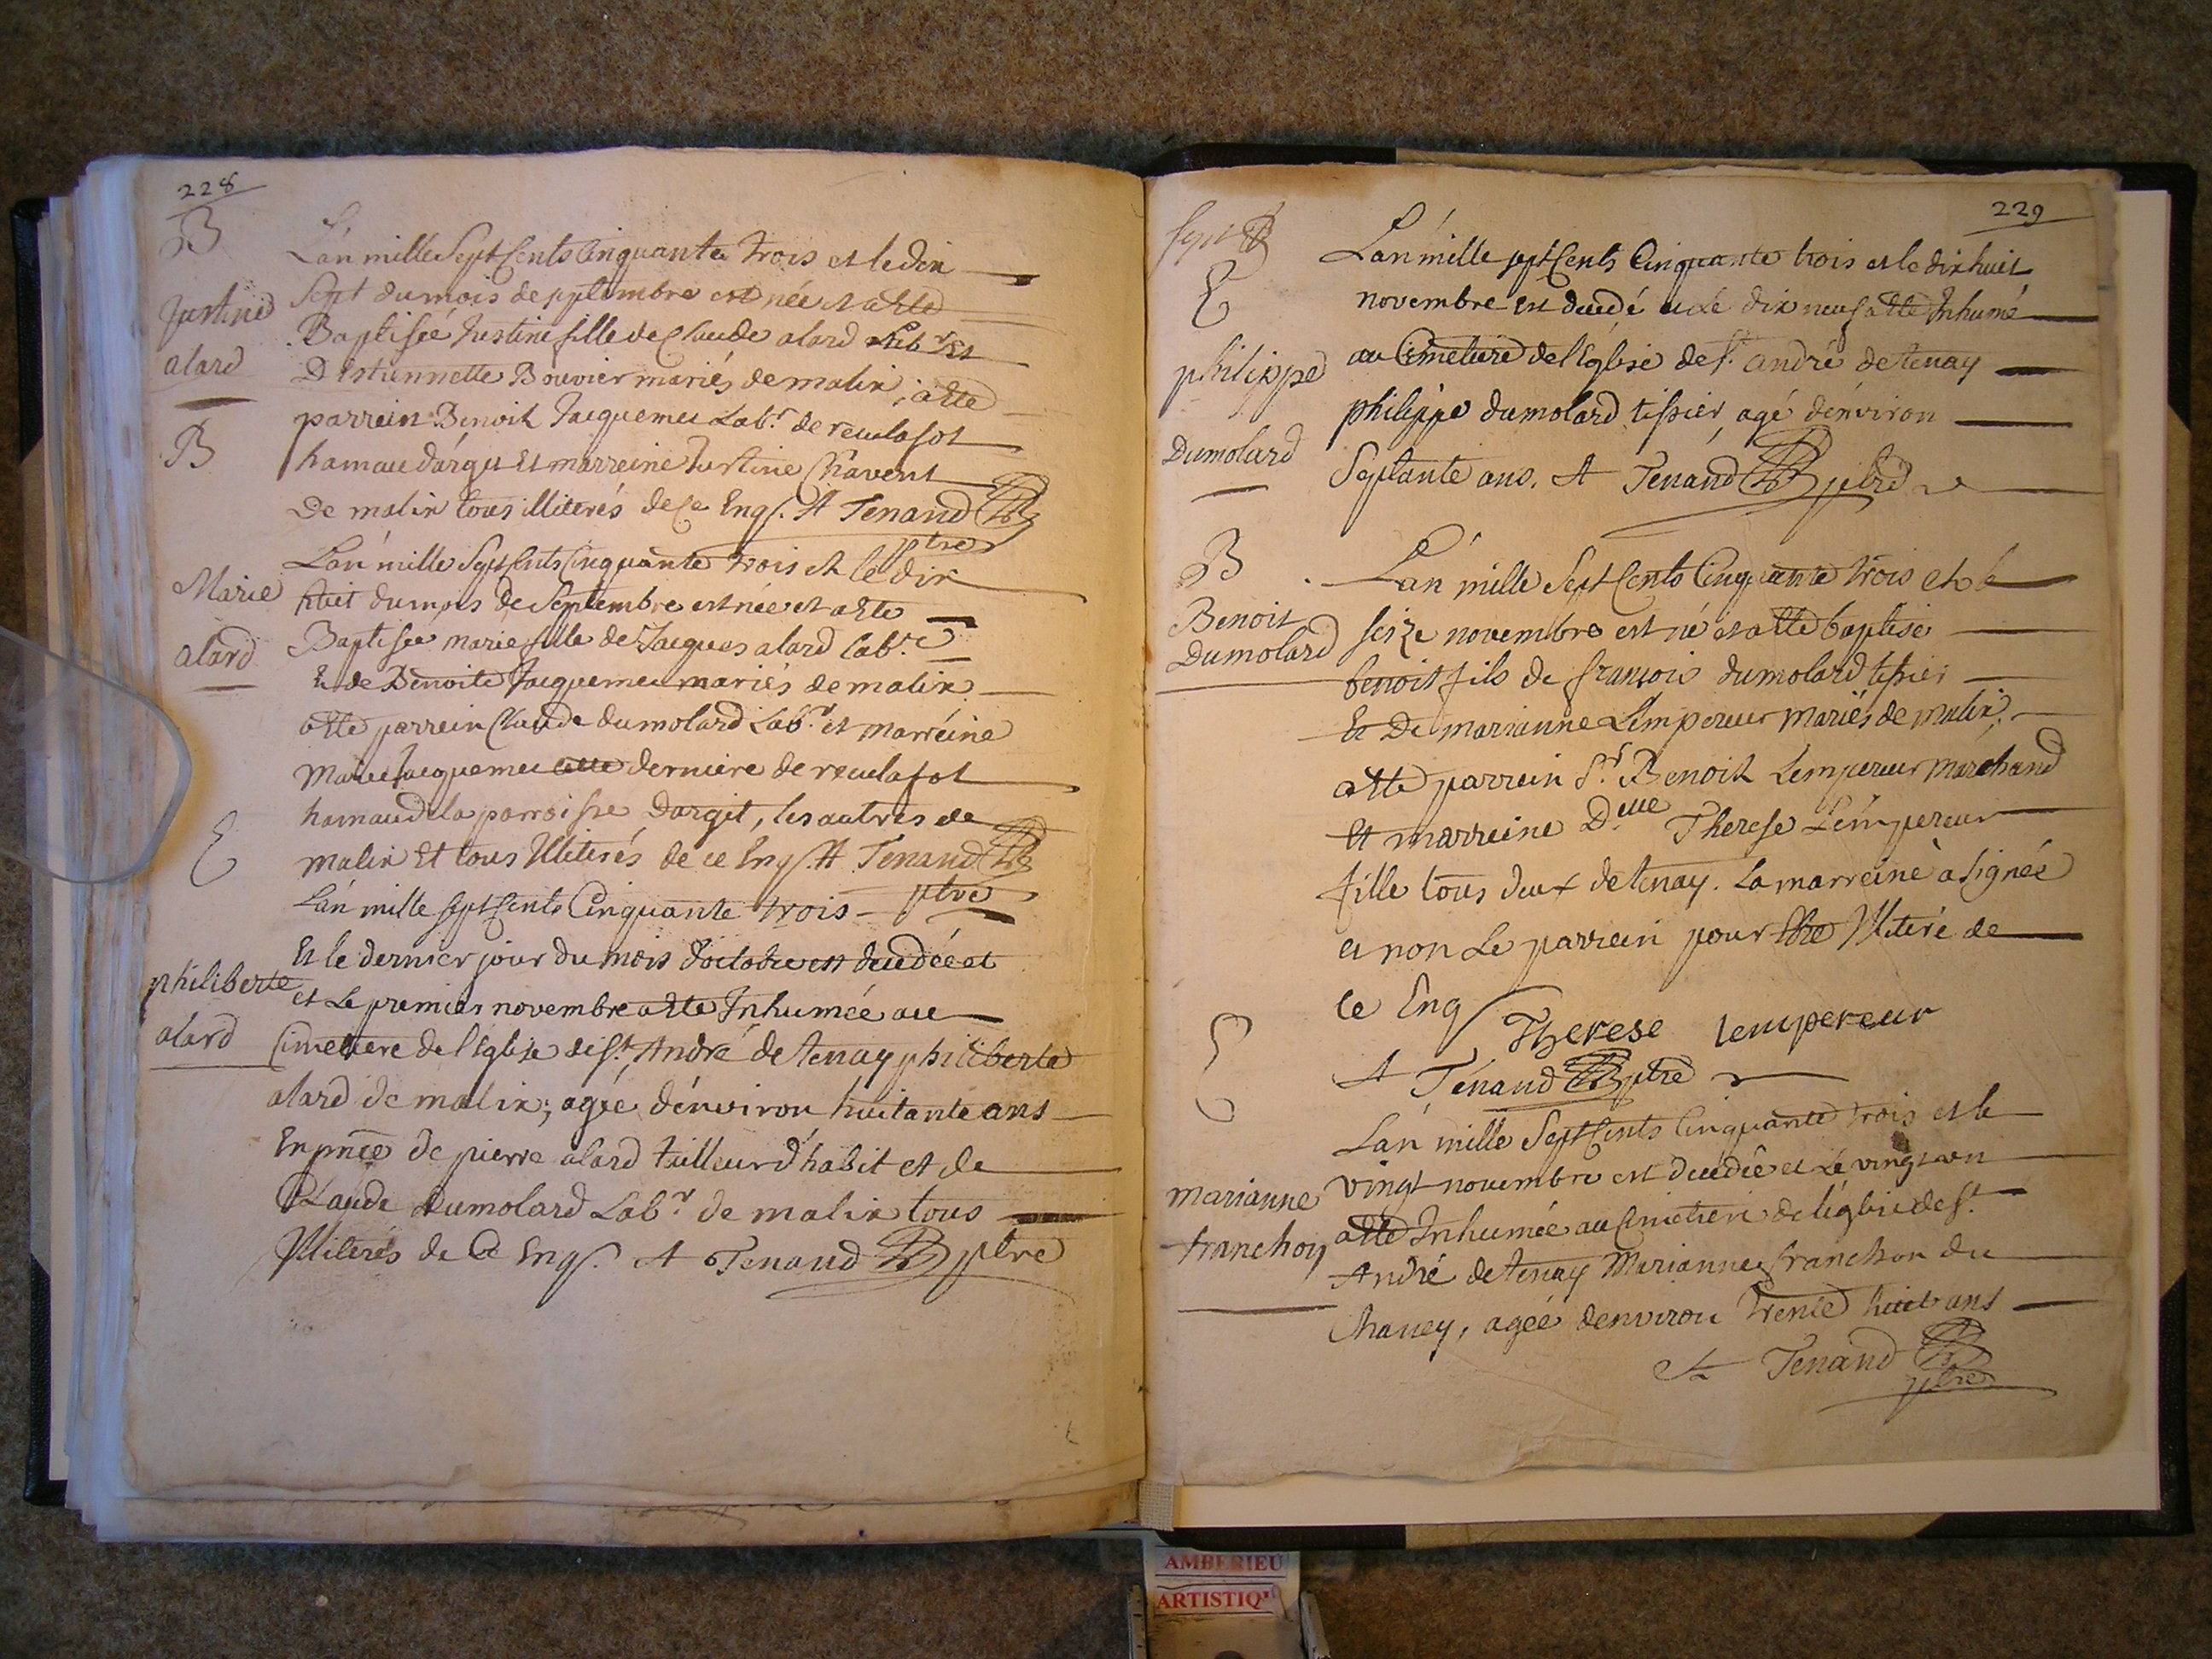 228
B
Justine
alard
L'an mille Sept Cents Cinquante trois et le dix
Sept du mois de septembre est née et a ete
Baptisée Justine fille de Claude alard Labr Et
D'Estiennette Bouvier mariés de malix; a ete
parrein Benoit Jacquemet Labr. de reculafol
hamau d'argit Et marreine Justine Chavent
De malix tous illiterés de ce Enq. A Tenand
ptre
B
Marie
alard
L'an mille Sept Cents Cinquante trois et le dix
huit du mois de Septembre est née et a ete
Baptisée marie fille de Jacques alard labr.
Et de Benoite Jacquemet mariés de malix
a ete parrein Claude dumolard Labr. et marreine
Marie Jacquemet cette derniere de reculafol
hamaud la parroisse d'argit, les autres de
malix Et tous Illiterés de ce Enq. A Tenand
ptre
E
philiberte
alard
L'an mille sept Cents Cinquante trois
Et le dernier jour du mois d'octobre est decedée et
et Le premier novembre a ete Inhumée au
Cimetiere de l'Eglise de St. André de tenay philiberte
alard de malix; agée d'environ huitante ans
En pnce de pierre alard tailleur d'habit et de
Claude dumolard Labr. de malix tous
Illiterés de Ce Enq. A Tenand ptre
229
Sept
E
philippe
Dumolard
L'an mille sept Cents Cinquante trois et le dix huit
novembre Est decedé et Le dix neuf a ete Inhumé
au Cimetiere de l'Eglise de St. andré de tenay
philippe dumolard tissier, agé d'environ
Septante ans. A Tenand ptre
B
Benoit
Dumolard
L'an mille Sept Cents Cinquante trois et le
seize novembre est né et a ete baptisé
benoit fils de françois dumolard tissier
Et De marianne L'empereur mariés de malix;
a ete parrein Sr. Benoit Lempereur marchand
Et marreine Delle Therese L'empereur
fille tous deux de tenay. La marreine a signée
et non Le parrein pour etre Illiteré de
ce Enq
Therese lempereur
A Tenand ptre
E
marianne
franchon
L'an mille Sept Cents Cinquante trois et le
vingt novembre est decedée et Le vingt un
a ete Inhumée au Cimetiere de l'eglise de St.
André de tenay Marianne franchon du
Chaney, agée d'environ trente huit ans
A Tenand
ptre
AMBERIEU
ARTISTIQ